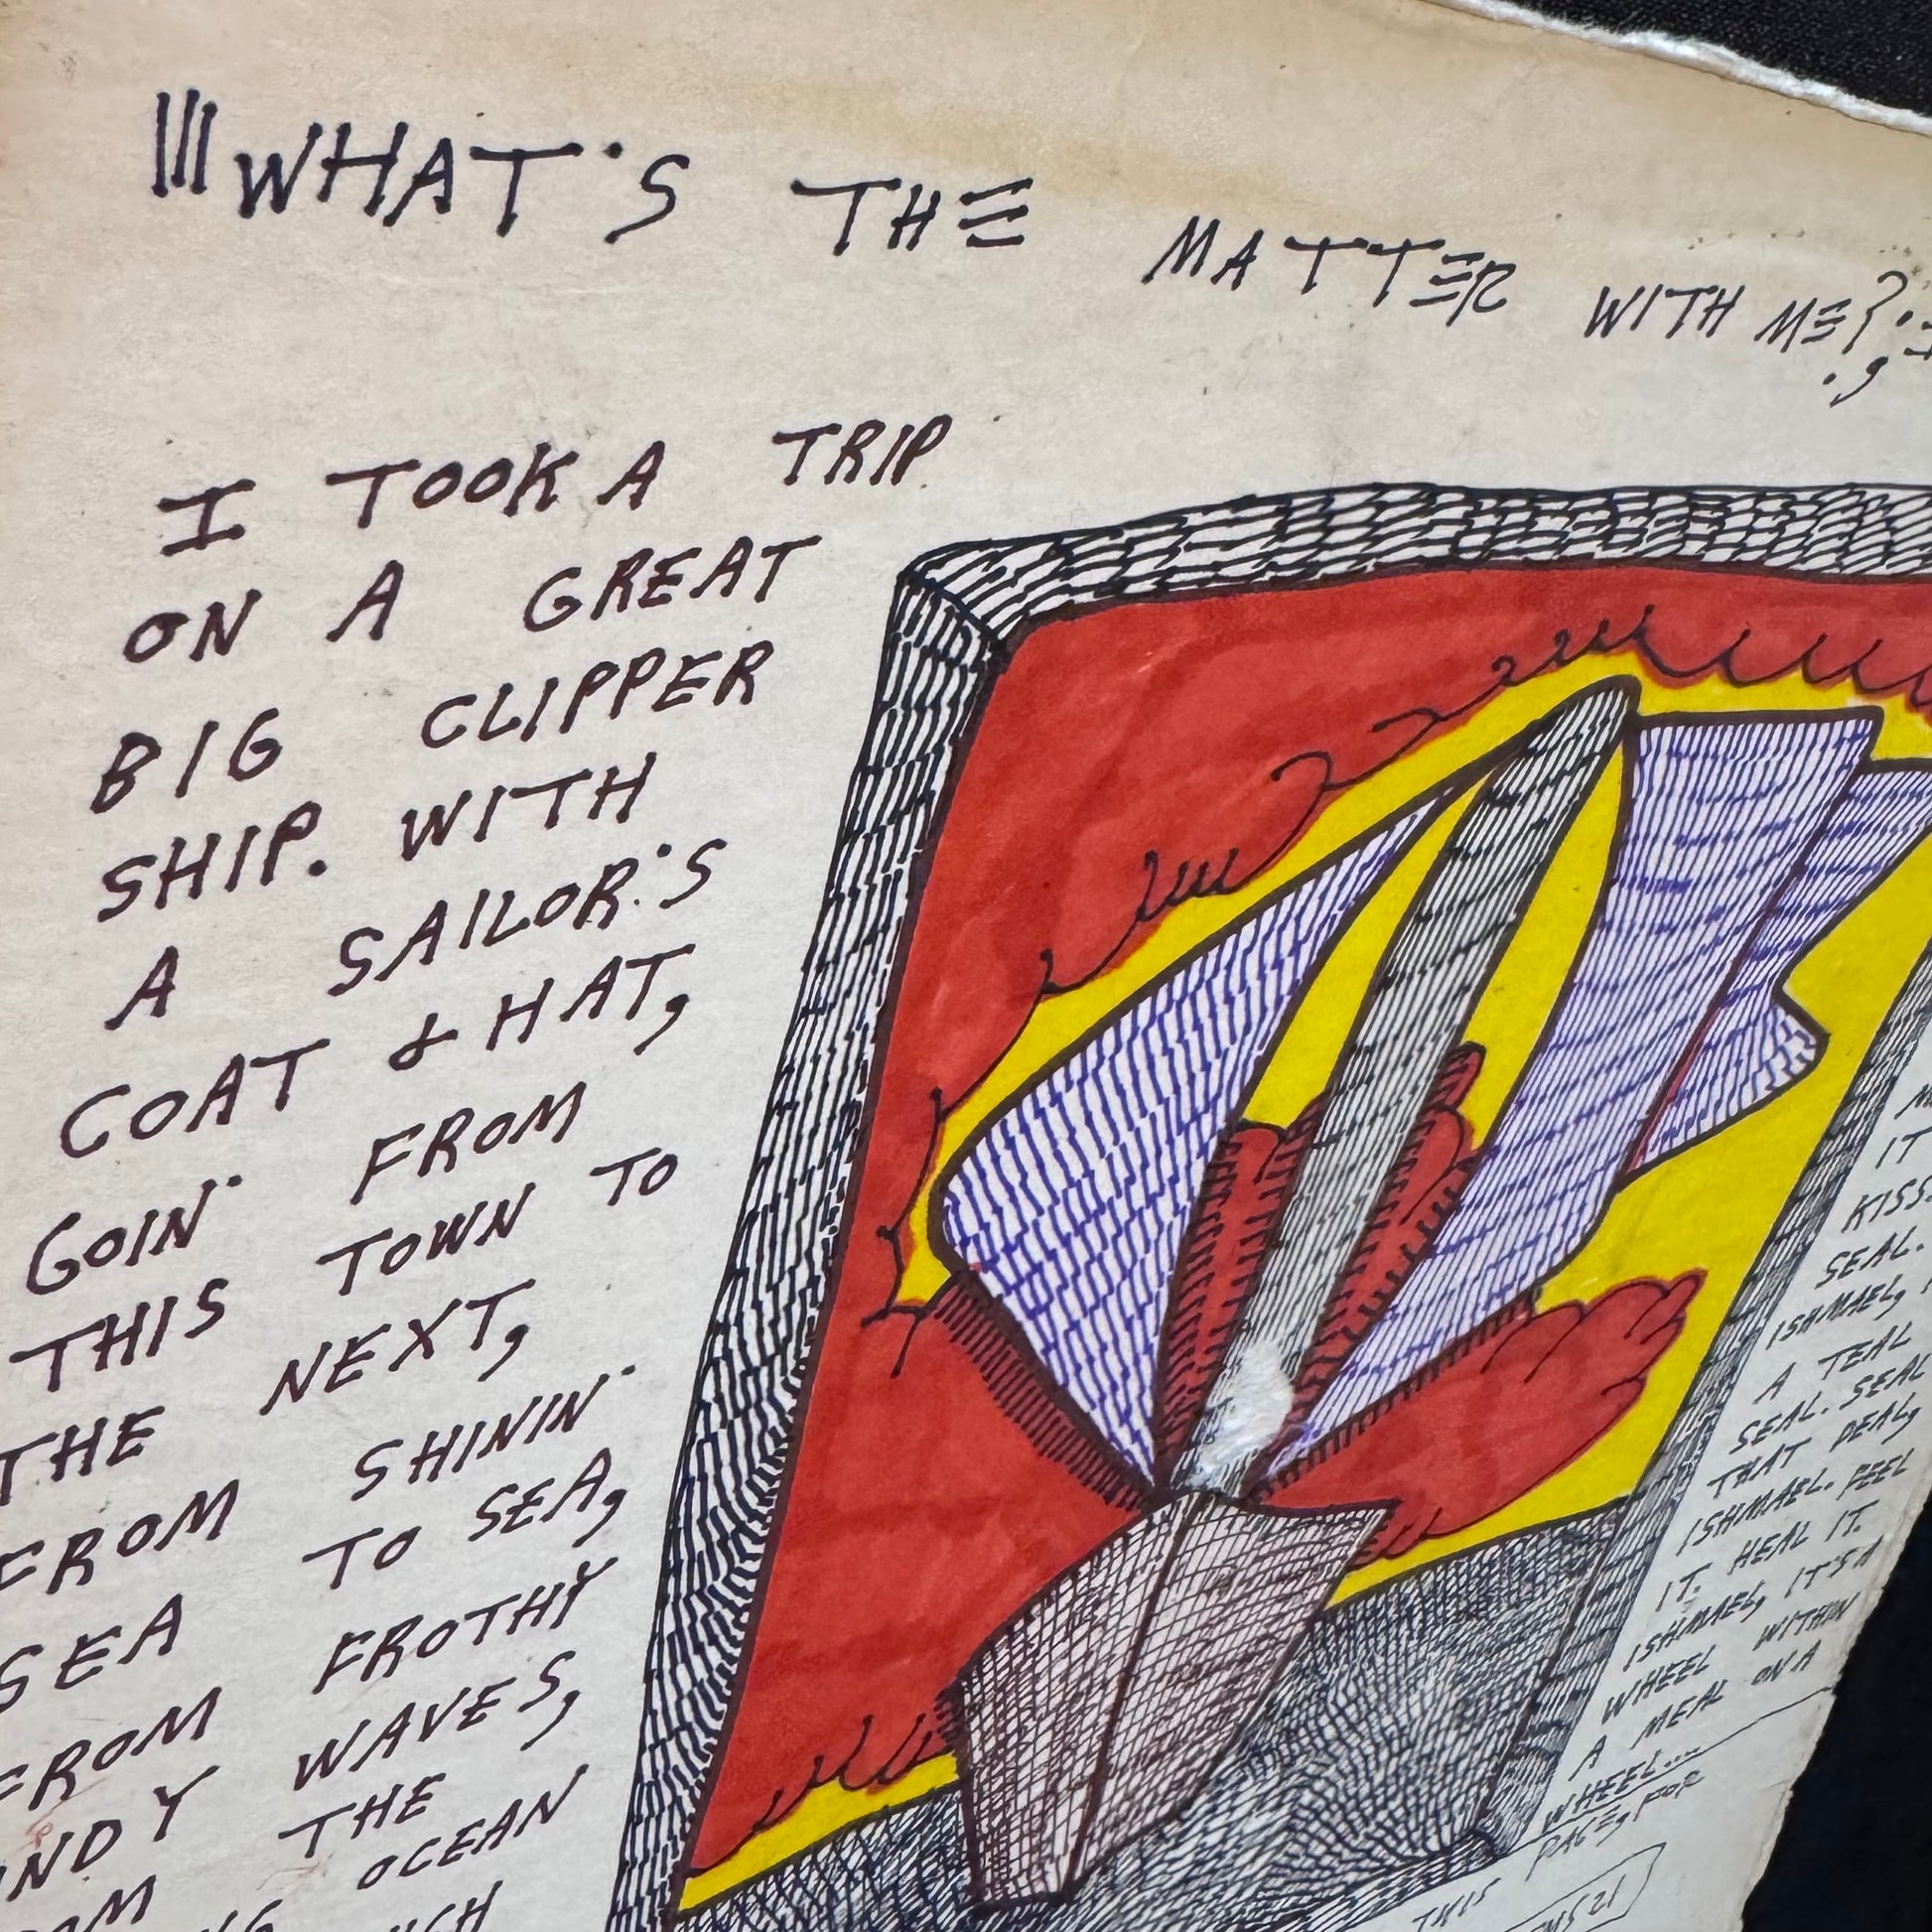 WHAT'S THE MATTER WITH ME?
I TOOK A TRIP
ON A GREAT
BIG CLIPPER
SHIP. WITH
A SAILOR'S
COAT & HAT,
GOIN' FROM
THIS TOWN TO
THE NEXT,
FROM SHININ'
SEA TO SEA,
FROM FROTHY
WAVES,
THE
OCEAN
IT
KISS.
SEAL.
ISHMAEL,
A TEAL
SEAL. SEAL
THAT DEAL,
ISHMAEL. PEEL
IT. HEAL IT.
ISHMAEL, IT'S A
WHEEL WITHIN
A MEAL ON A
WHEEL....
THIS PAGE, FOR